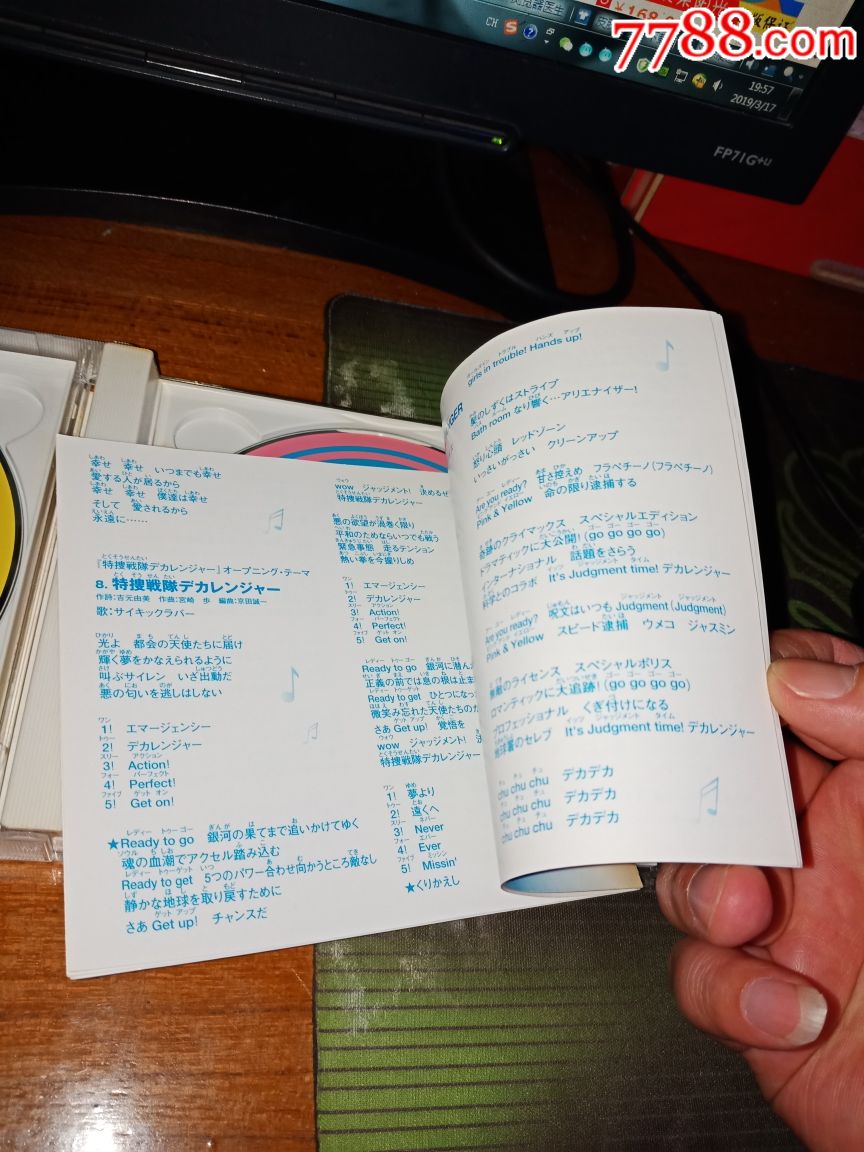 7788.com
CH
19:57
2019/3/17
FP71G+U
幸せ 幸せ いつまでも幸せ
愛する人が居るから
幸せ 幸せ 僕達は幸せ
そして 愛されるから
永遠に……
『特捜戦隊デカレンジャー』オープニング・テーマ
8. 特捜戦隊デカレンジャー
作詩:吉元由美 作曲:宮崎 歩 編曲:京田誠一
歌:サイキックラバー
光よ 都会の天使たちに届け
輝く夢をかなえられるように
叫ぶサイレン いざ出動だ
悪の匂いを逃しはしない
1! エマージェンシー
2! デカレンジャー
3! Action!
4! Perfect!
5! Get on!
★Ready to go 銀河の果てまで追いかけてゆく
魂の血潮でアクセル踏み込む
Ready to get 5つのパワー合わせ向かうところ敵なし
静かな地球を取り戻すために
さあ Get up! チャンスだ
wow ジャッジメント! 決めるぜ
特捜戦隊デカレンジャー
悪の欲望が渦巻く限り
平和のためならいつでも戦う
緊急事態 走るテンション
熱い拳を今握りしめ
1! エマージェンシー
2! デカレンジャー
3! Action!
4! Perfect!
5! Get on!
Ready to go 銀河に潜んだ
正義の前では息の根は止ま
Ready to get ひとつになっ
微笑み忘れた天使たちのた
さあ Get up! 覚悟を
wow ジャッジメント!
特捜戦隊デカレンジャー
1! 夢より
2! 遠くへ
3! Never
4! Ever
5! Missin'
★くりかえし
girls in trouble! Hands up!
髪のしずくはストライプ
Bath room なり響く…アリエナイザー!
怒り心頭 レッドゾーン
いっさいがっさい クリーンアップ
Are you ready? 甘さ控えめ フラペチーノ(フラペチーノ)
Pink & Yellow 命の限り逮捕する
奇跡のクライマックス スペシャルエディション
ドラマティックに大公開! (go go go go)
インターナショナル 話題をさらう
科学とのコラボ It's Judgment time! デカレンジャー
Are you ready? 呪文はいつも Judgment (Judgment)
Pink & Yellow スピード逮捕 ウメコ ジャスミン
無敵のライセンス スペシャルポリス
ロマンティックに大追跡! (go go go go)
プロフェッショナル くぎ付けになる
地球署のセレブ It's Judgment time! デカレンジャー
chu chu chu デカデカ
chu chu chu デカデカ
chu chu chu デカデカ